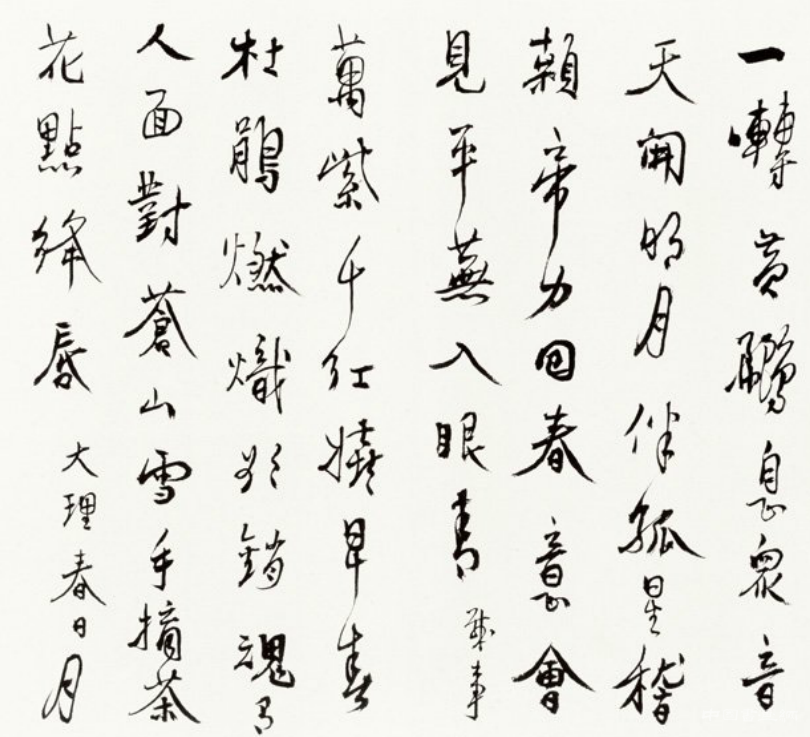 一囀黃鸝息衆音
天開明月伴孤星稽
顙帝力回春意會
見平蕪入眼青 事
萬紫千紅燒早春
杜鵑燃熾欲銷魂有
人面對蒼山雪手摘茶
花點絳唇 大理春日 月